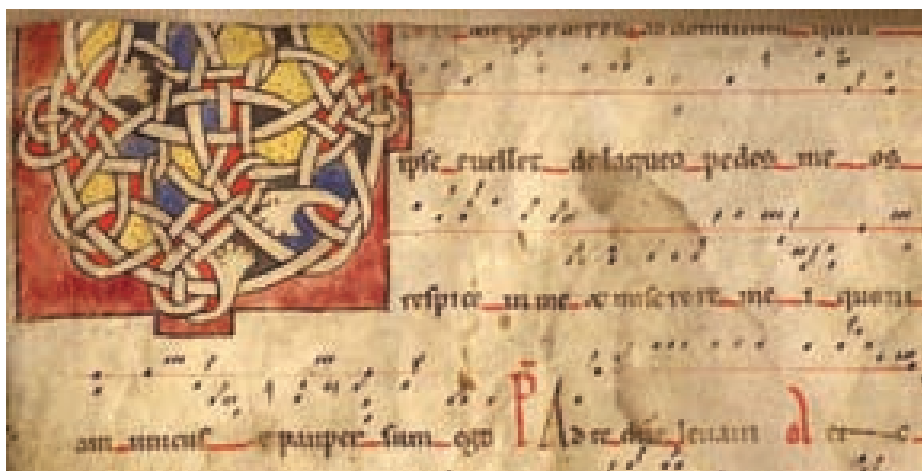 ipse euellet de laqueo pedes me os
respice in me & miserere me i quoni
am unicus & pauper sum ego P Ad te dne leuaui